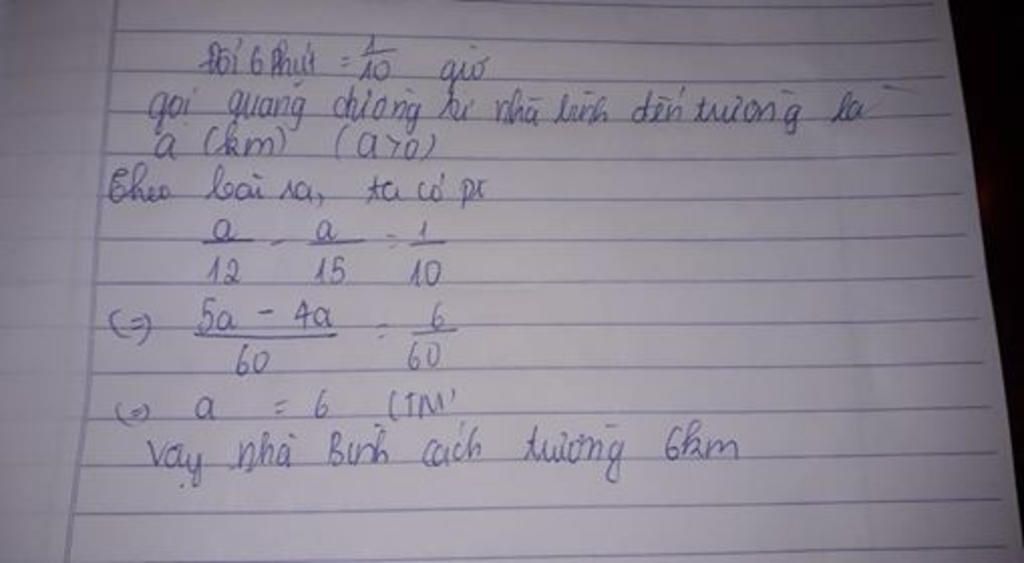 Đổi 6 phút = 1/10 giờ
gọi quãng đường từ nhà bình đến trường là
a (km) (a>0)
Theo bài ra, ta có pt
a/12 - a/15 = 1/10
(=) 5a - 4a/60 = 6/60
(=) a = 6 (TM)
Vậy nhà Bình cách trường 6km